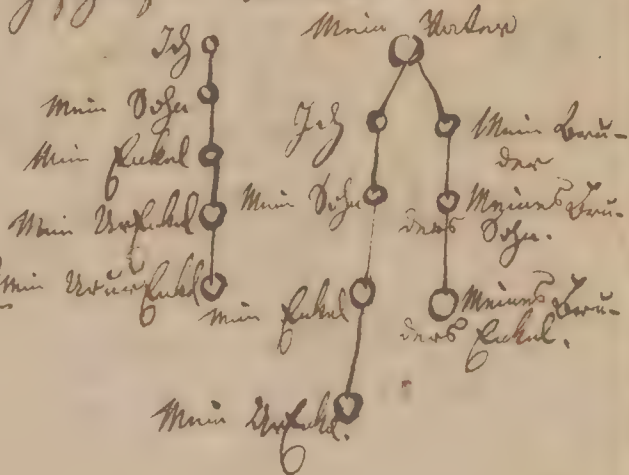 Ich
Mein Sohn
Mein Enkel
Mein UrEnkel
Mein UrurEnkel
Mein Vater
Ich
Mein Sohn
Mein Enkel
Mein UrEnkel.
Mein Bru-
der
Meines Bru-
ders Sohn.
Meines Bru-
ders Enkel.